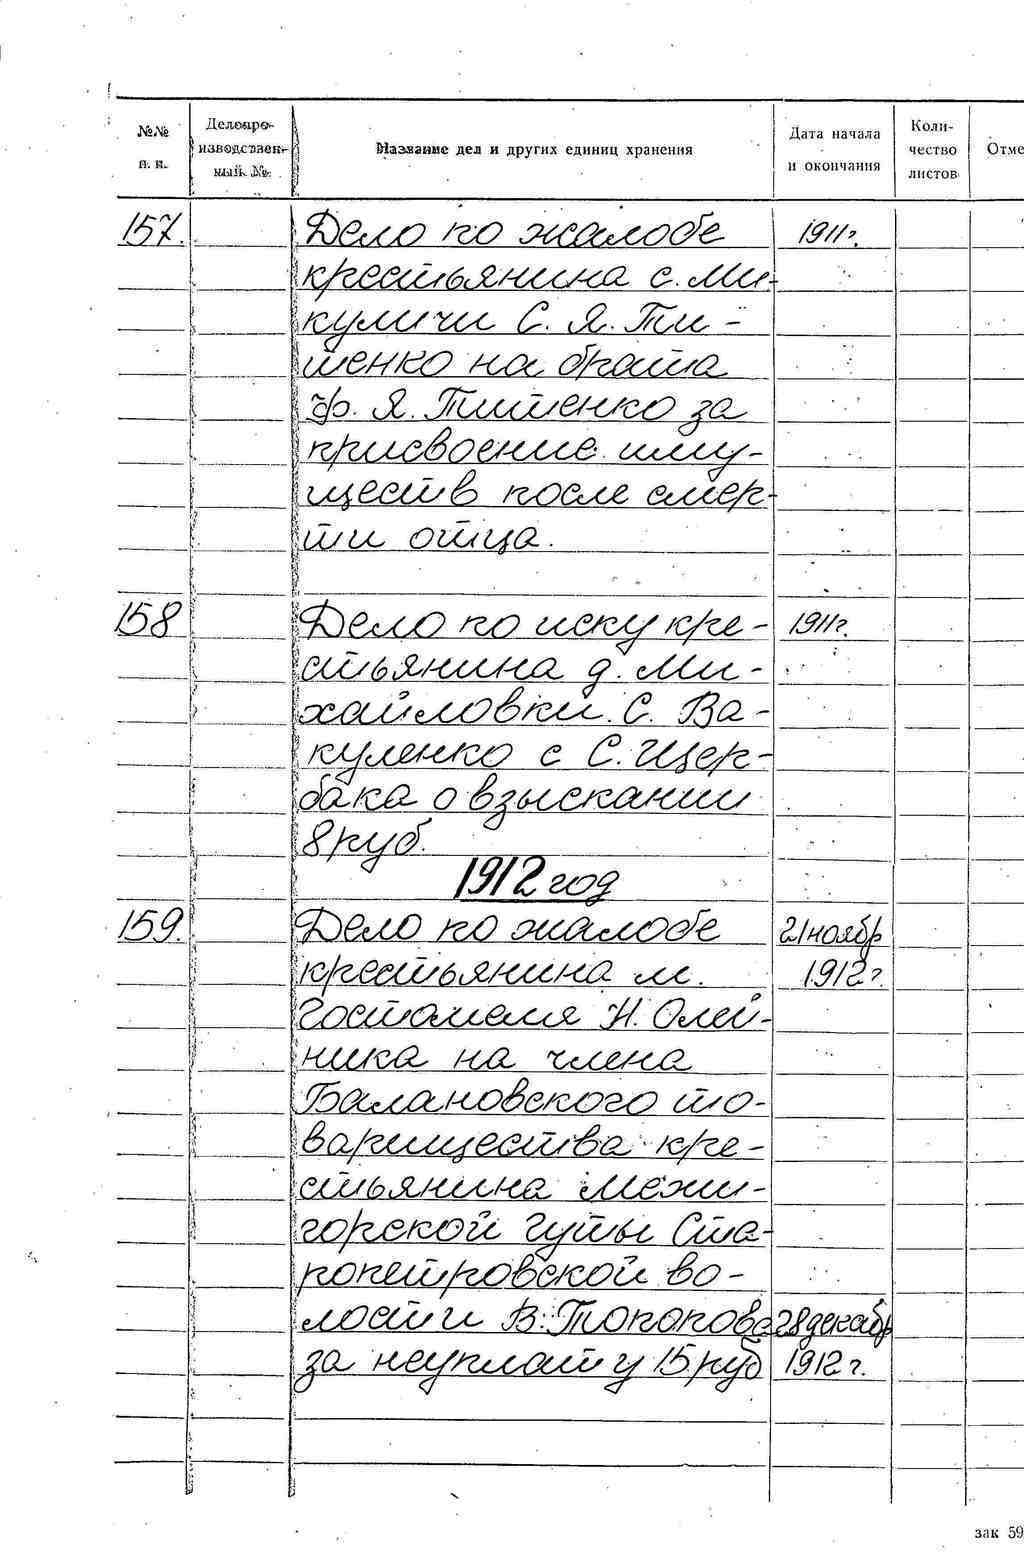 №№
п. п.
Делопро-
изводствен-
ный №
Название дел и других единиц хранения
Дата начала
и окончания
Коли-
чество
листов
Отме
157. Дело по жалобе 1911г.
крестьянина с. Ми-
куличи С. Я. Ти-
тенко на брата
Ф. Я. Титенко за
присвоение иму-
ществ после смер-
ти отца.
158 Дело по иску кре- 1911г.
стьянина д. Ми-
хайловки С. Ва-
куленко с С. Щер-
бака о взыскании
8 руб.
1912 год
159. Дело по жалобе 21 ноябр
крестьянина м. 1912г.
Гостомеля Н. Олей-
ника на члена
Балановского то-
варищества кре-
стьянина Межи-
горской Гуты Ста-
ропетровской во-
лости В. 28 декабр
за неуплату 15 руб 1912 г.
зак 59